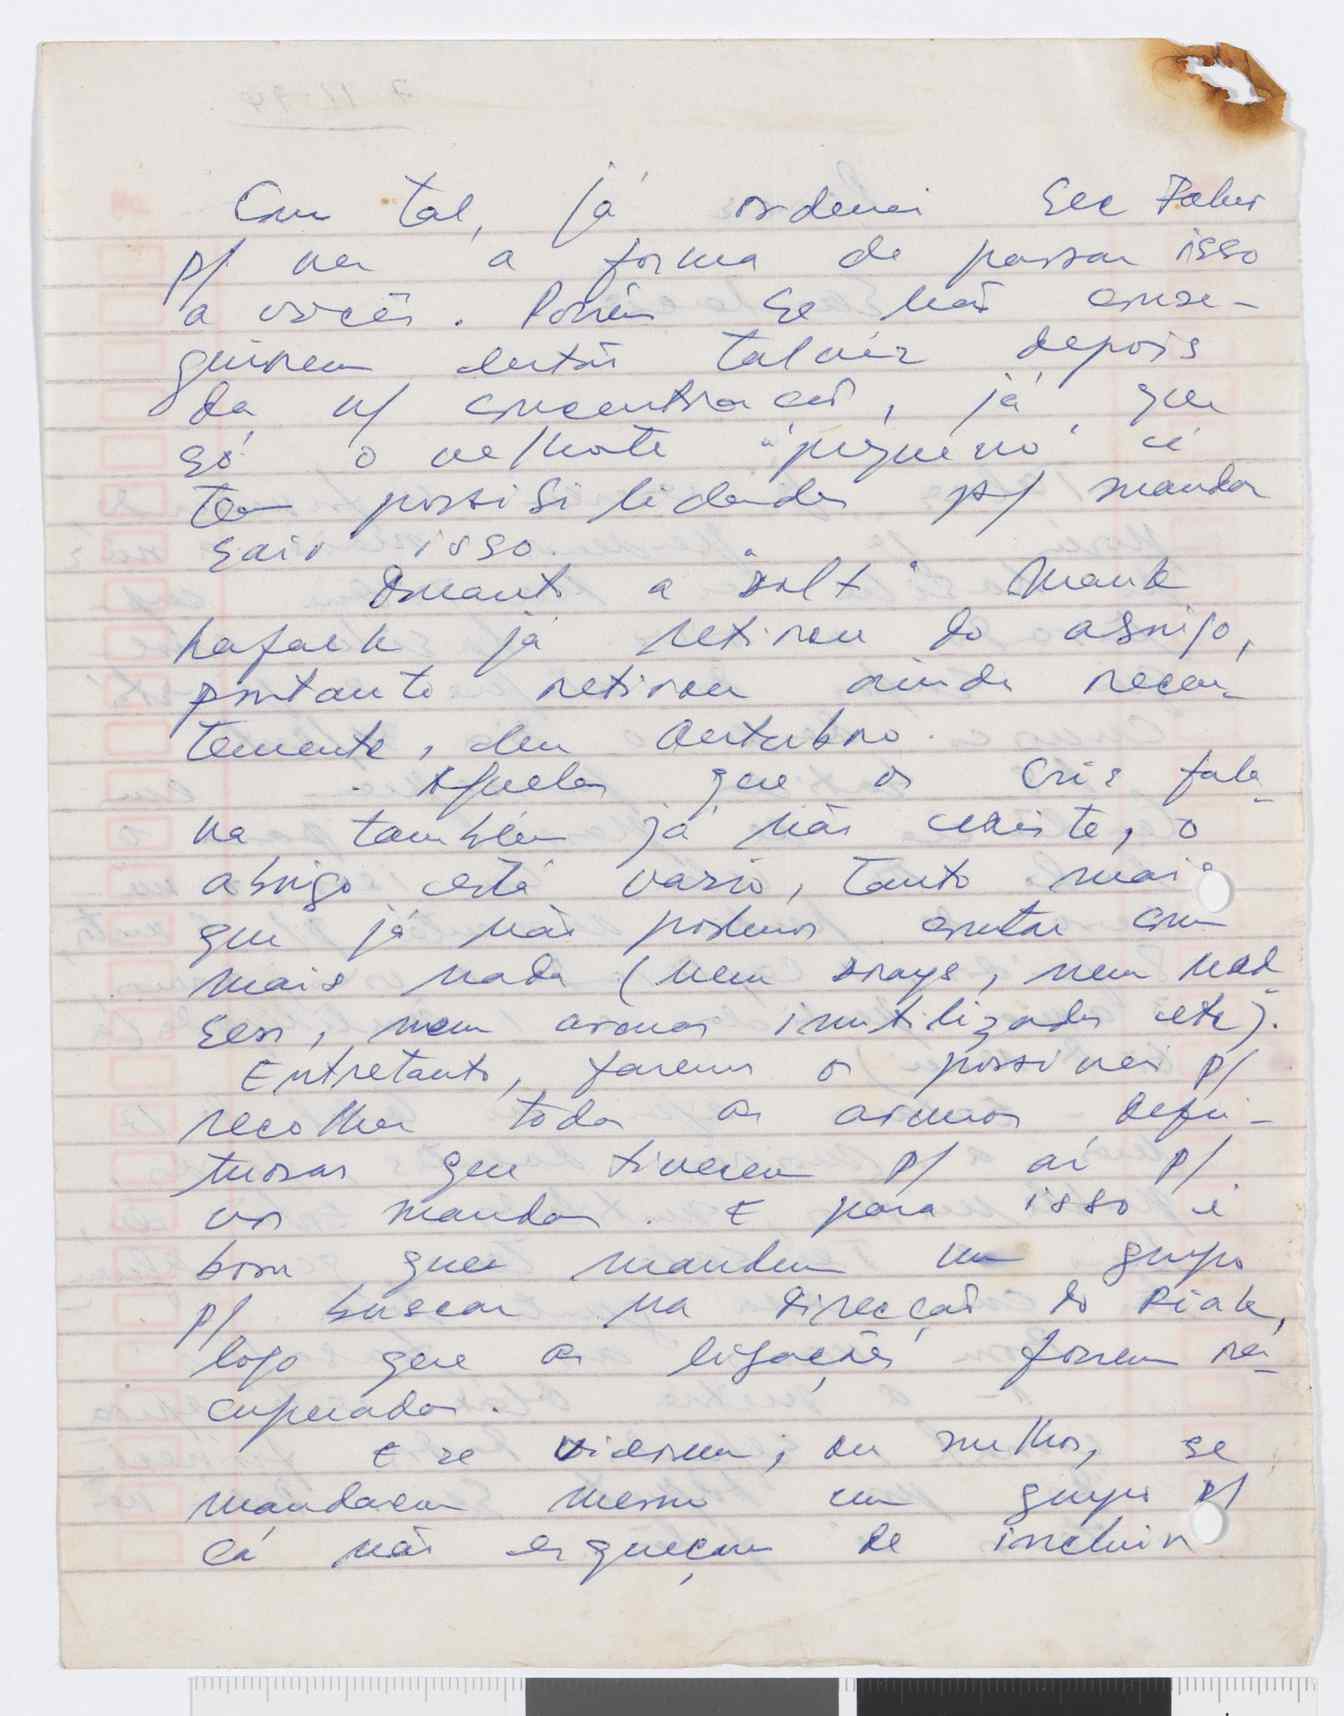 Com tal, já ordenei Sec
p/ ver a forma de passar isso
a vocês. Porém se não conse-
guirem destas talvez depois
da n/ concentração, já que
só o velhote "pequeno" é
tem possibilidades p/ mandar
sair isso.
Quanto a "solt" Mauk
já retirou do abrigo,
portanto retirou ainda recen-
temente, em Outubro.
Aqueles que o Cris fala-
va também já não existe, o
abrigo está vazio, tanto mais
que já não podemos contar com
mais nada (nem drags, nem Mad-
sen, nem armas inutilizadas etc).
Entretanto, farem o possivel p/
recolher todas as armas defei-
tuosas que tiverem p/ aí p/
vos mandar. E para isso é
bom que mandem um grupo
p/ buscar na direcção do Riak,
logo que as ligações forem re-
cuperadas.
E se vierem, ou melhor, se
mandarem mesmo um grupo p/
cá não esqueçam de incluir